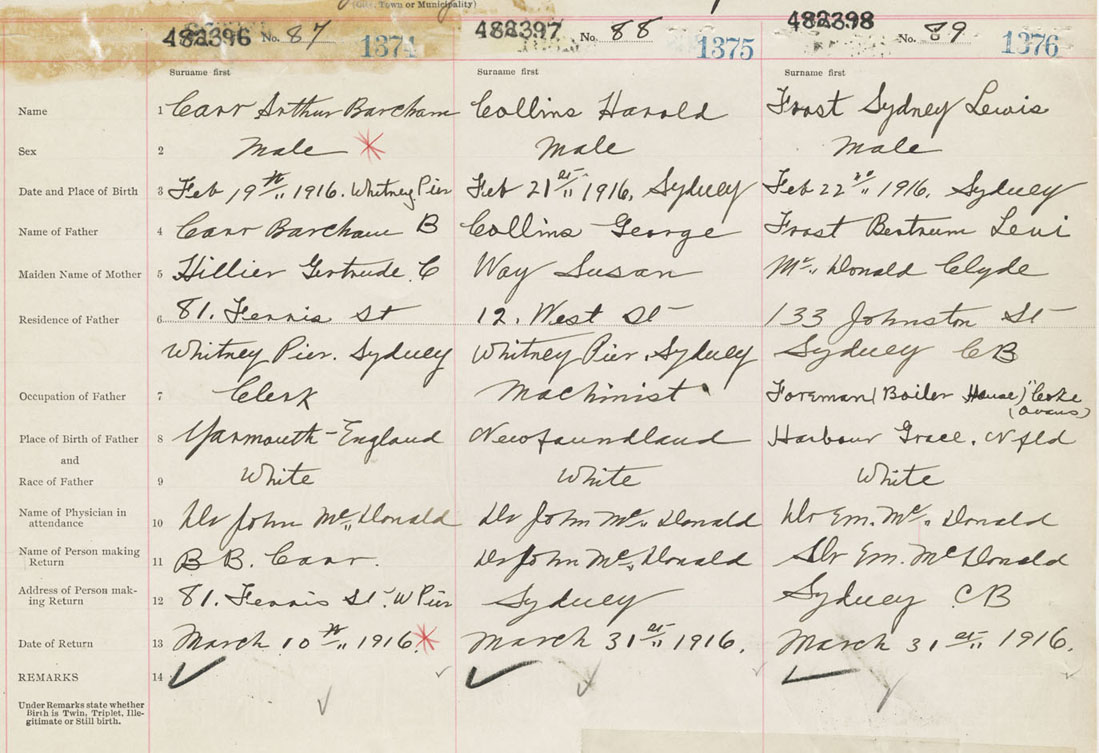 (City, Town or Municipality)
482396 No. 87 1374 482397 No. 88 1375 482398 No. 89 1376
Surname first Surname first Surname first
Name 1 Carr Arthur Barcham Collins Harold Frost Sydney Lewis
Sex 2 Male Male Male
Date and Place of Birth 3 Feb 19th 1916. Whitney Pier Feb 21st 1916, Sydney Feb 22nd 1916, Sydney
Name of Father 4 Carr Barcham B Collins George Frost Bertrum Levi
Maiden Name of Mother 5 Hillier Gertrude. C Way Susan Mc Donald Clyde
Residence of Father 6 81. Ferris St 12. West St 133 Johnston St
Whitney Pier. Sydney Whitney Pier, Sydney Sydney CB
Occupation of Father 7 Clerk Machinist Foreman (Boiler House) "Coke
(ovans)
Place of Birth of Father 8 Yarmouth-England Newfoundland Harbour Grace. Nfld
and
Race of Father 9 White White White
Name of Physician in
attendance 10 Dr John Mc Donald Dr John Mc Donald Dr Em. Mc Donald
Name of Person making
Return 11 B B. Carr. Dr John Mc Donald Dr Em. Mc Donald
Address of Person mak-
ing Return 12 81. Ferris St. W Pier Sydney Sydney CB
Date of Return 13 March 10th 1916. March 31st 1916. March 31st 1916.
REMARKS 14
Under Remarks state whether
Birth is Twin, Triplet, Ille-
gitimate or Still birth.